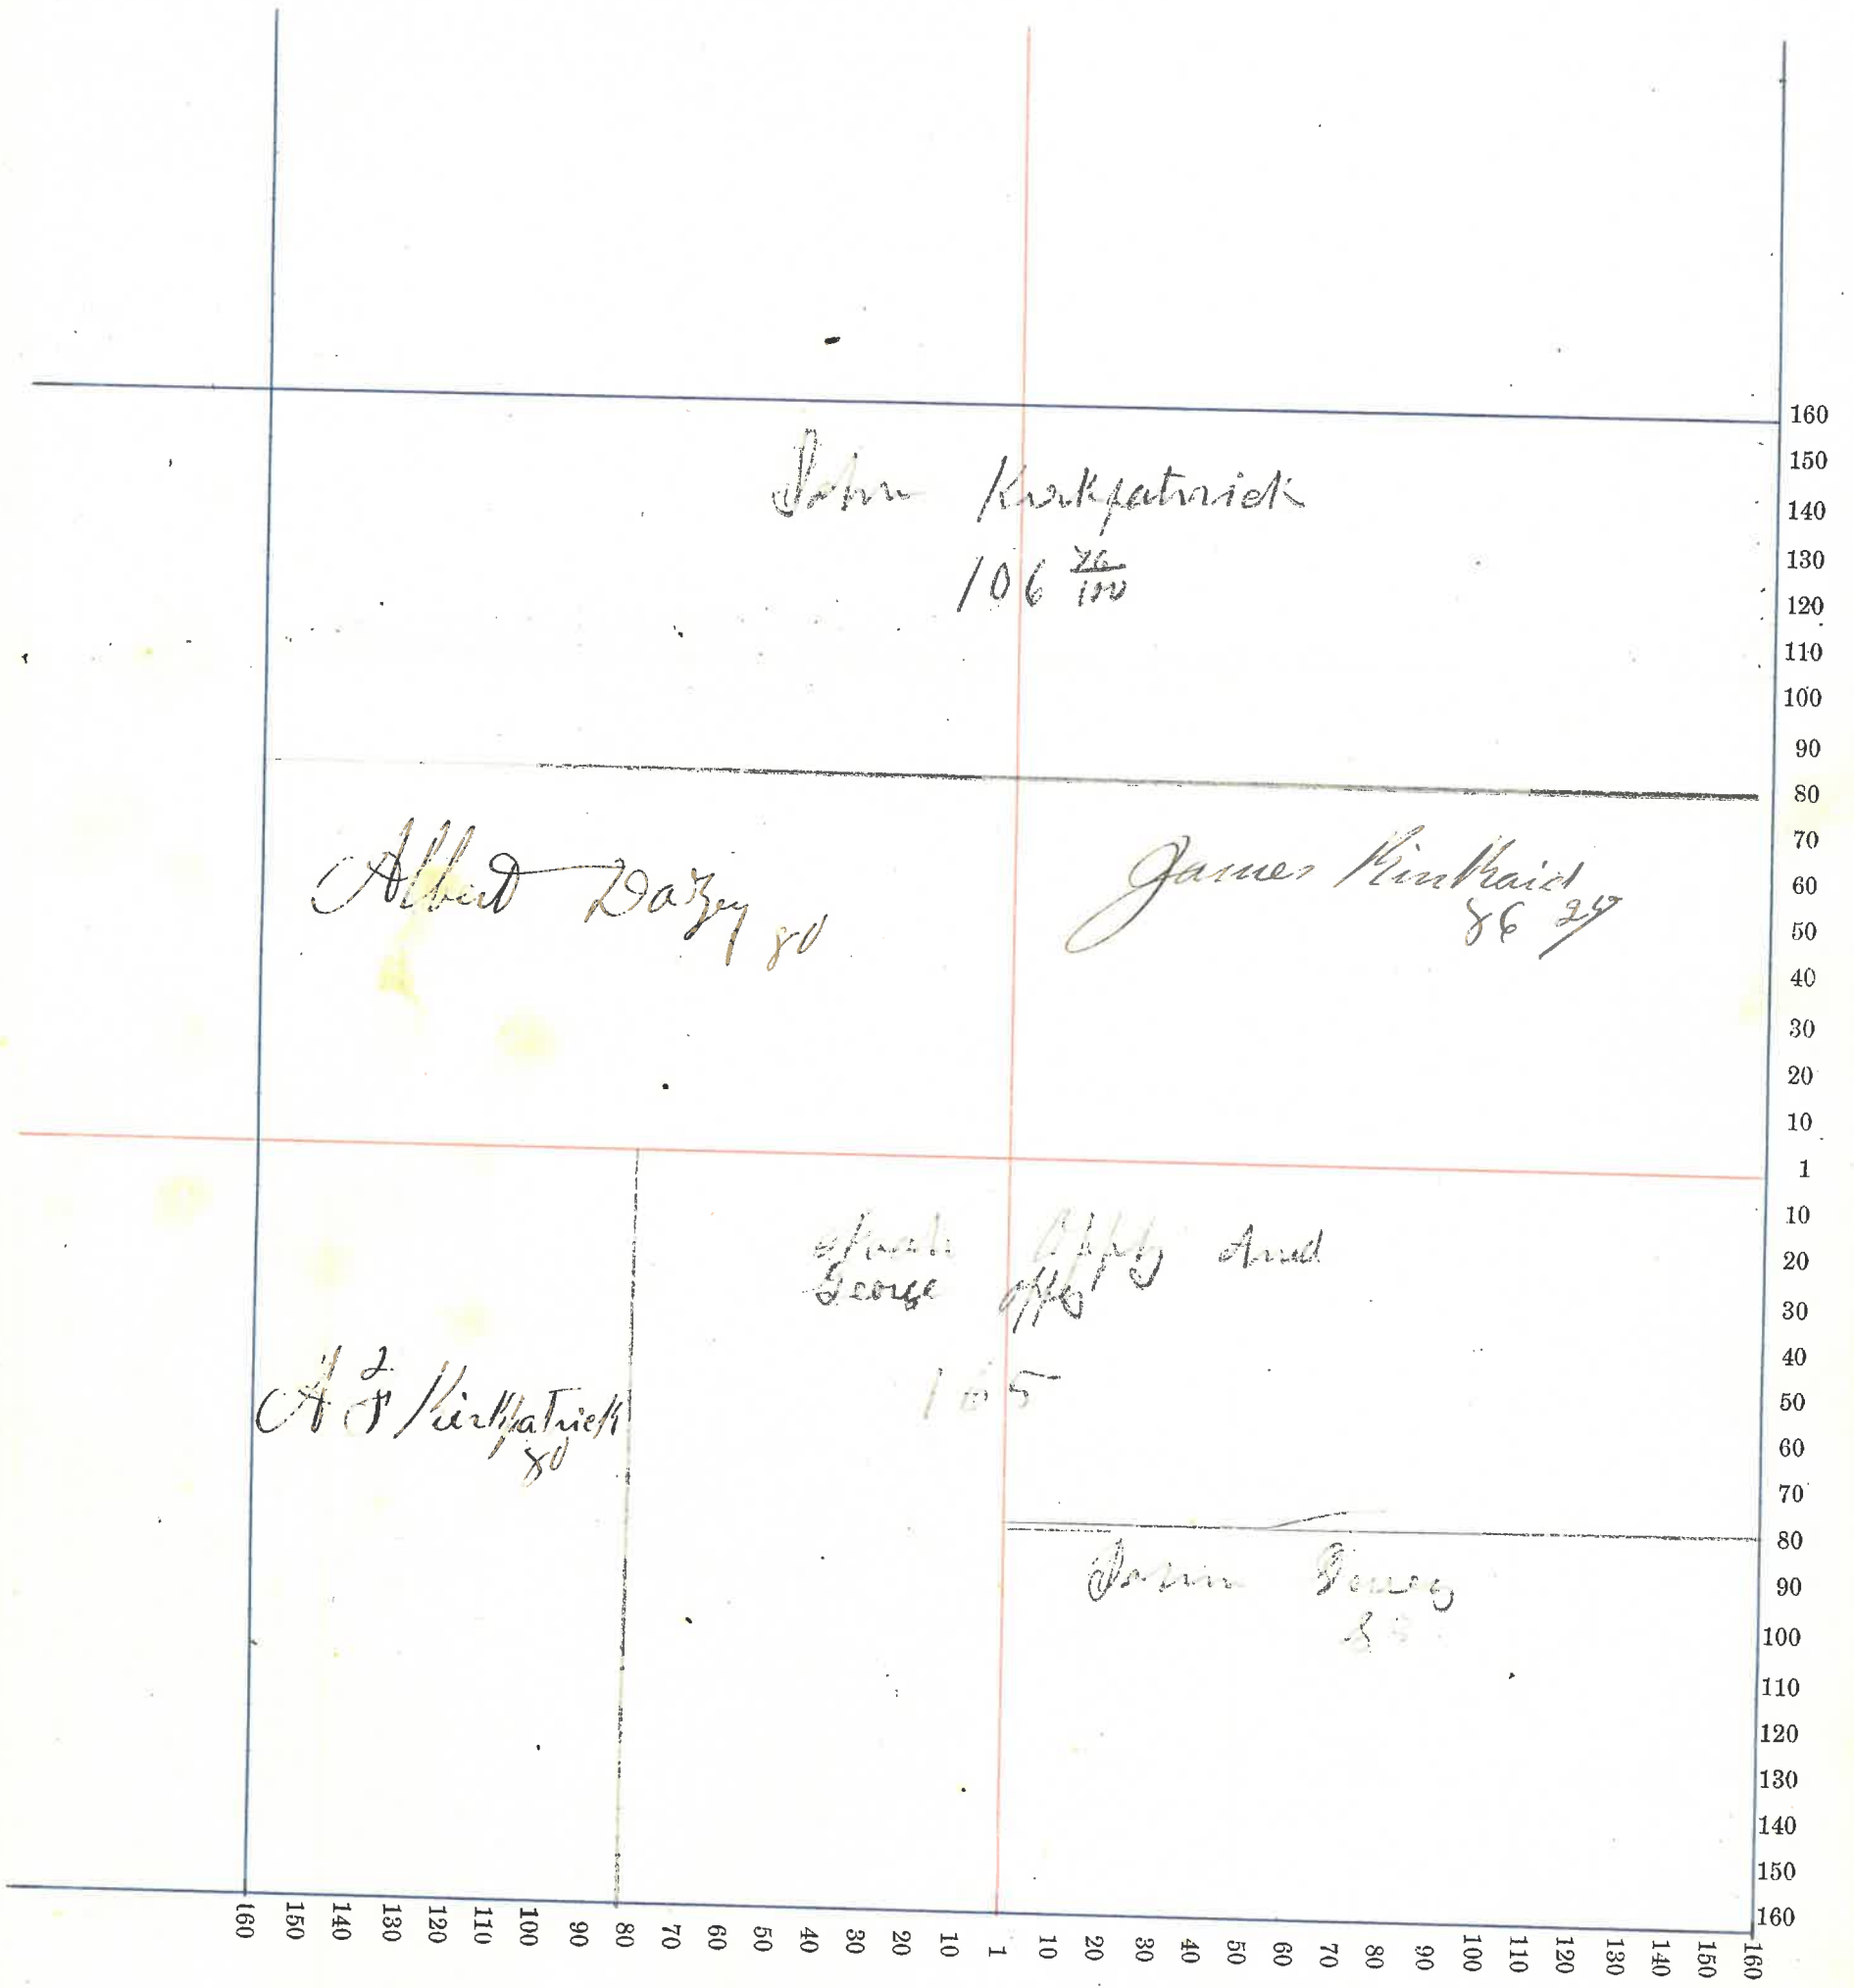 John Kirkpatrick
106 76/100
Albert Dazey 80
James Kinkaid
86 24
And
George
105
A J Kirkpatrick
80
John
160
150
140
130
120
110
100
90
80
70
60
50
40
30
20
10
1
10
20
30
40
50
60
70
80
90
100
110
120
130
140
150
160
160 150 140 130 120 110 100 90 80 70 60 50 40 30 20 10 1 10 20 30 40 50 60 70 80 90 100 110 120 130 140 150 160